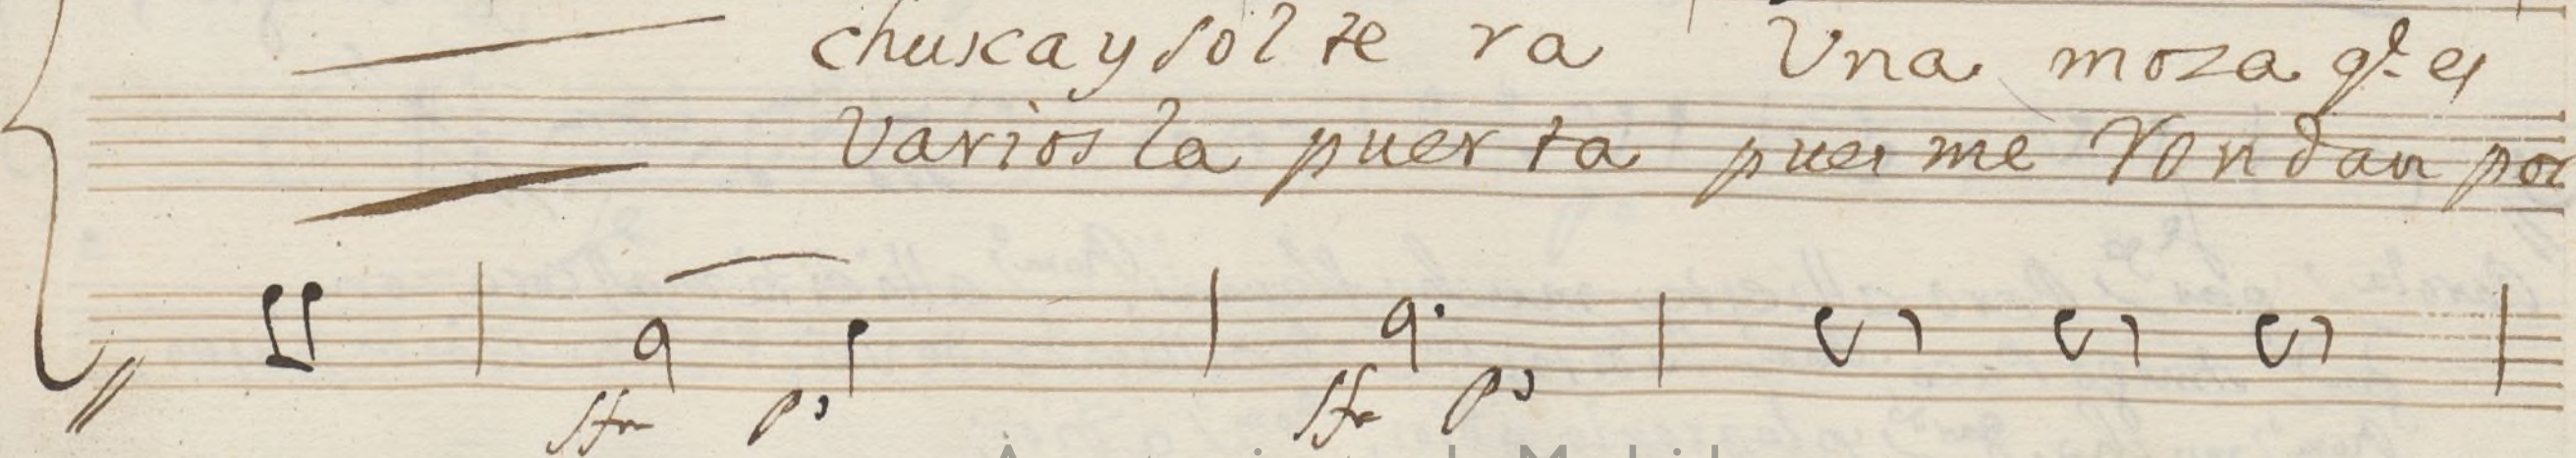 chusca y sol te ra Una moza q.e es
varios la puer ta pues me rondan por
sfr p.o sfr p.o